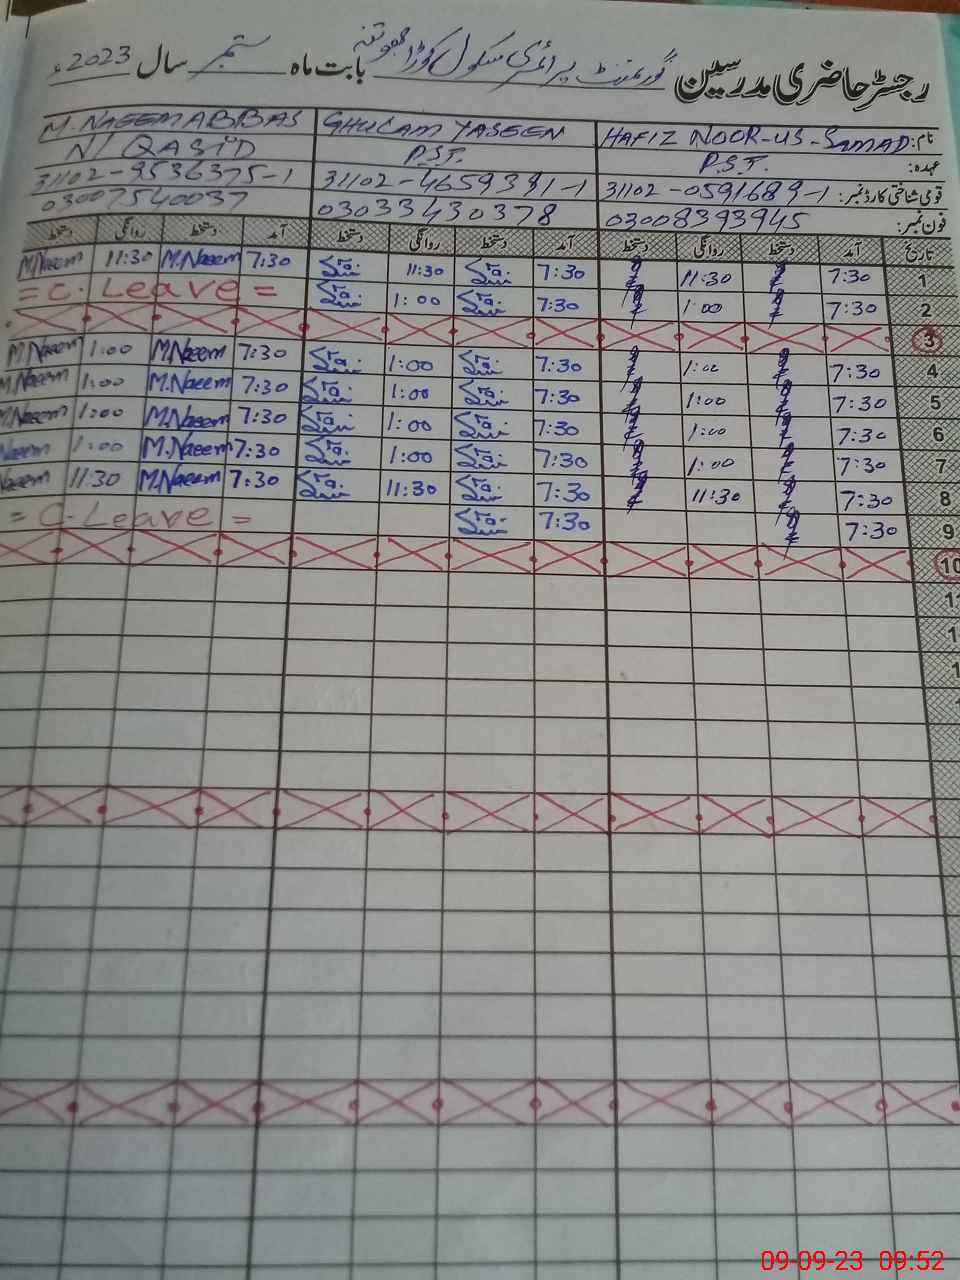 رجسٹر حاضری مدرسین گورنمنٹ پرائمری سکول بابت ماہ ستمبر سال 2023ء
نام: HAFIZ NOOR-US-SAMAD GHULAM YASEEN M. NAEEM ABBAS
عہدہ: P.S.T. P.S.T. N/QASID
قومی شناختی کارڈ نمبر: 31102-0591689-1 31102-4659391-1 31102-9536375-1
فون نمبر: 03008393945 03033430378 03007540037
تاریخ آمد دستخط روانگی دستخط آمد دستخط روانگی دستخط آمد دستخط روانگی دستخط
1 7:30 11:30 7:30 11:30 7:30 M.Naeem 11:30 M.Naeem
2 7:30 1:00 7:30 1:00 = C. Leave =
3
4 7:30 1:00 7:30 1:00 7:30 M.Naeem 1:00 M.Naeem
5 7:30 1:00 7:30 1:00 7:30 M.Naeem 1:00 M.Naeem
6 7:30 1:00 7:30 1:00 7:30 M.Naeem 1:00 M.Naeem
7 7:30 1:00 7:30 1:00 7:30 M.Naeem 1:00 Naeem
8 7:30 11:30 7:30 11:30 7:30 M.Naeem 11:30 Naeem
9 7:30 7:30 = C. Leave =
10
09-09-23 09:52